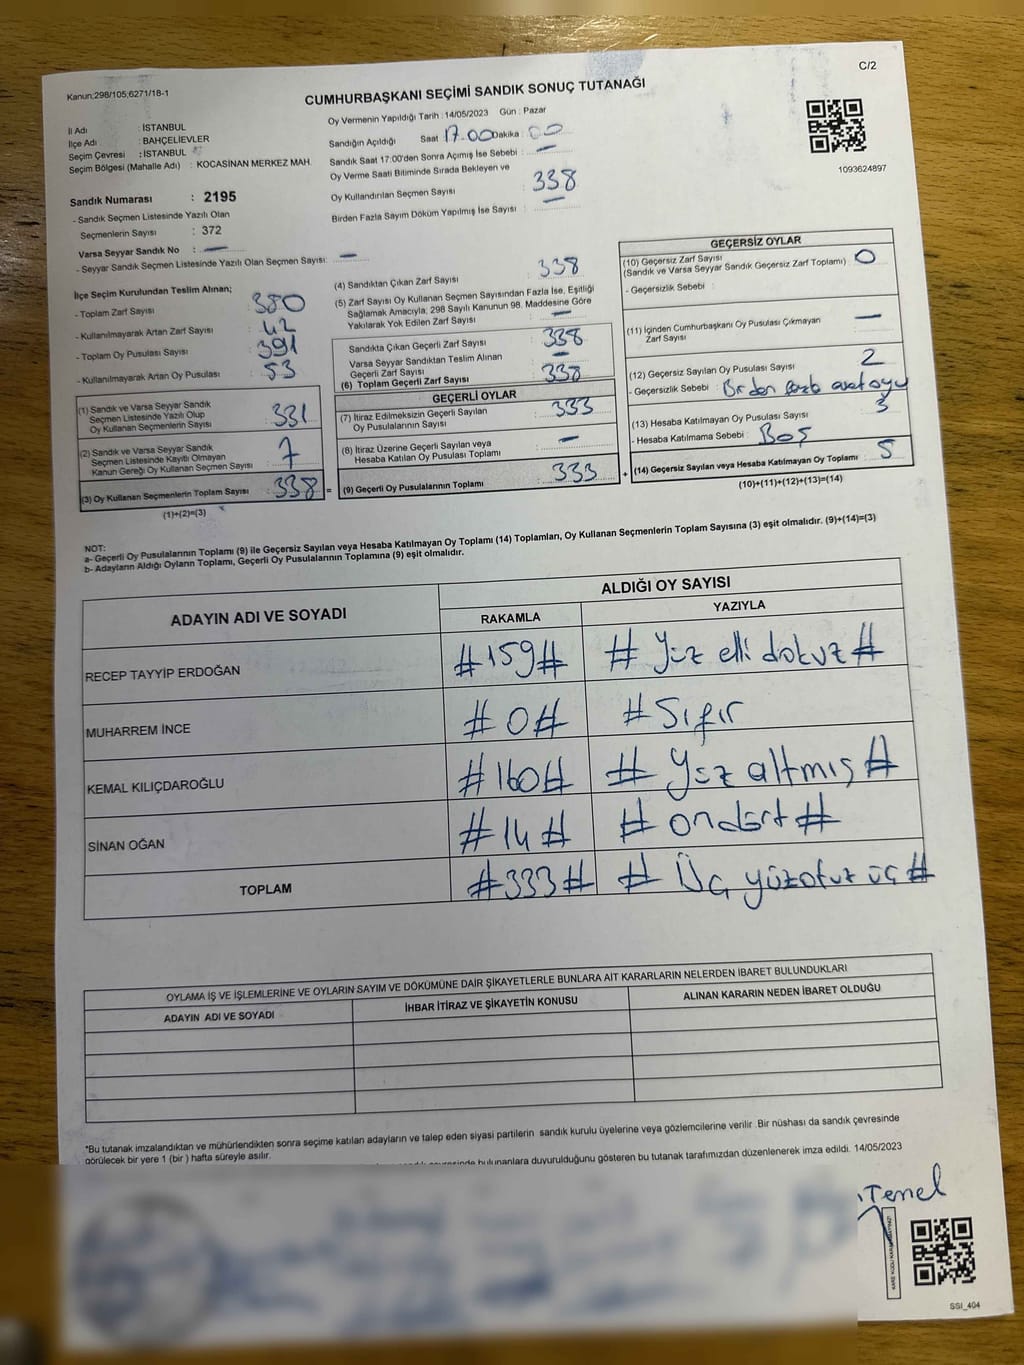 Kanun:298/105;6271/18-1
C/2
CUMHURBAŞKANI SEÇİMİ SANDIK SONUÇ TUTANAĞI
İl Adı : İSTANBUL
İlçe Adı : BAHÇELİEVLER
Seçim Çevresi : İSTANBUL
Seçim Bölgesi (Mahalle Adı) : KOCASİNAN MERKEZ MAH.
Sandık Numarası : 2195
- Sandık Seçmen Listesinde Yazılı Olan
Seçmenlerin Sayısı : 372
Varsa Seyyar Sandık No : —
- Seyyar Sandık Seçmen Listesinde Yazılı Olan Seçmen Sayısı: —
Oy Vermenin Yapıldığı Tarih : 14/05/2023 Gün : Pazar
Sandığın Açıldığı Saat 17.00 Dakika : 00
Sandık Saat 17:00'den Sonra Açımış İse Sebebi : —
Oy Verme Saati Bitiminde Sırada Bekleyen ve
Oy Kullandırılan Seçmen Sayısı : 338
Birden Fazla Sayım Döküm Yapılmış İse Sayısı : —
1093624897
İlçe Seçim Kurulundan Teslim Alınan;
- Toplam Zarf Sayısı : 380
- Kullanılmayarak Artan Zarf Sayısı : 42
- Toplam Oy Pusulası Sayısı : 391
- Kullanılmayarak Artan Oy Pusulası : 53
(1) Sandık ve Varsa Seyyar Sandık
Seçmen Listesinde Yazılı Olup
Oy Kullanan Seçmenlerin Sayısı : 331
(2) Sandık ve Varsa Seyyar Sandık
Seçmen Listesinde Kayıtlı Olmayan
Kanun Gereği Oy Kullanan Seçmen Sayısı : 7
(3) Oy Kullanan Seçmenlerin Toplam Sayısı : 338 =
(1)+(2)=(3)
(4) Sandıktan Çıkan Zarf Sayısı : 338
(5) Zarf Sayısı Oy Kullanan Seçmen Sayısından Fazla İse, Eşitliği
Sağlamak Amacıyla; 298 Sayılı Kanunun 98. Maddesine Göre
Yakılarak Yok Edilen Zarf Sayısı : —
Sandıkta Çıkan Geçerli Zarf Sayısı : 338
Varsa Seyyar Sandıktan Teslim Alınan
Geçerli Zarf Sayısı : —
(6) Toplam Geçerli Zarf Sayısı : 338
GEÇERLİ OYLAR
(7) İtiraz Edilmeksizin Geçerli Sayılan
Oy Pusulalarının Sayısı : 333
(8) İtiraz Üzerine Geçerli Sayılan veya
Hesaba Katılan Oy Pusulası Toplamı : —
(9) Geçerli Oy Pusulalarının Toplamı : 333 +
GEÇERSİZ OYLAR
(10) Geçersiz Zarf Sayısı
(Sandık ve Varsa Seyyar Sandık Geçersiz Zarf Toplamı) : 0
- Geçersizlik Sebebi :
(11) İçinden Cumhurbaşkanı Oy Pusulası Çıkmayan
Zarf Sayısı : —
(12) Geçersiz Sayılan Oy Pusulası Sayısı : 2
- Geçersizlik Sebebi : Birden fazla
(13) Hesaba Katılmayan Oy Pusulası Sayısı : 3
- Hesaba Katılmama Sebebi : Boş
(14) Geçersiz Sayılan veya Hesaba Katılmayan Oy Toplamı : 5
(10)+(11)+(12)+(13)=(14)
NOT:
a- Geçerli Oy Pusulalarının Toplamı (9) ile Geçersiz Sayılan veya Hesaba Katılmayan Oy Toplamı (14) Toplamları, Oy Kullanan Seçmenlerin Toplam Sayısına (3) eşit olmalıdır. (9)+(14)=(3)
b- Adayların Aldığı Oyların Toplamı, Geçerli Oy Pusulalarının Toplamına (9) eşit olmalıdır.
ADAYIN ADI VE SOYADI
ALDIĞI OY SAYISI
RAKAMLA YAZIYLA
RECEP TAYYİP ERDOĞAN #159# # Yüz elli dokuz #
MUHARREM İNCE #0# # Sıfır
KEMAL KILIÇDAROĞLU #160# # Yüz altmış #
SİNAN OĞAN #14# # ondört #
TOPLAM #333# # Üç yüzotuz üç #
OYLAMA İŞ VE İŞLEMLERİNE VE OYLARIN SAYIM VE DÖKÜMÜNE DAİR ŞİKAYETLERLE BUNLARA AİT KARARLARIN NELERDEN İBARET BULUNDUKLARI
ADAYIN ADI VE SOYADI İHBAR İTİRAZ VE ŞİKAYETİN KONUSU ALINAN KARARIN NEDEN İBARET OLDUĞU
*Bu tutanak imzalandıktan ve mühürlendikten sonra seçime katılan adayların ve talep eden siyasi partilerin sandık kurulu üyelerine veya gözlemcilerine verilir. Bir nüshası da sandık çevresinde
görülecek bir yere 1 (bir ) hafta süreyle asılır.
bulunanlara duyurulduğunu gösteren bu tutanak tarafımızdan düzenlenerek imza edildi. 14/05/2023
Temel
SSI_404